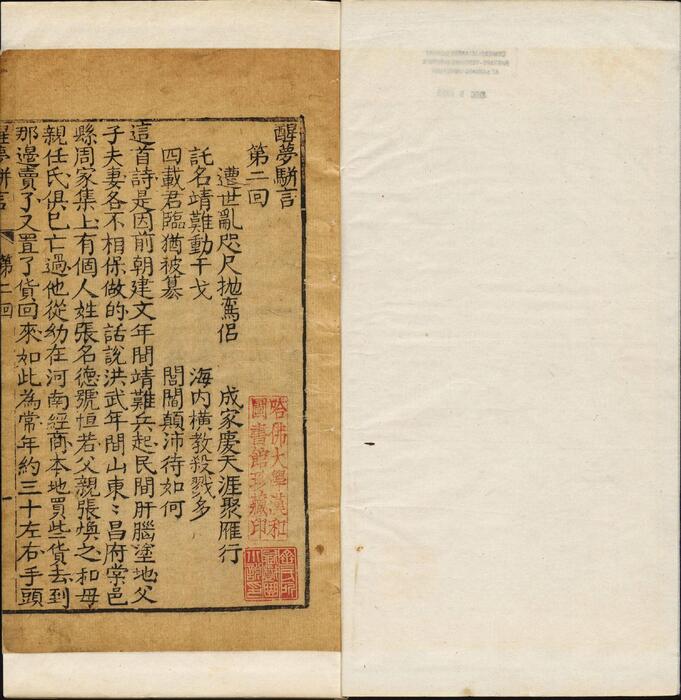 醒夢駢言
第二回
遭世亂咫尺抛鴛侶　成家慶天涯聚雁行
託名靖難動干戈　海内橫教殺戮多
四載君臨猶被篡　閭閻顛沛待如何
這首詩是因前朝建文年間靖難兵起民間肝腦塗地父
子夫妻各不相保做的話說洪武年間山東〻昌府棠邑
縣周家集上有個人姓張名德號恒若父親張煥之和母
親任氏俱已亡過他從幼在河南經商本地買些貨去到
那邊賣了又置了貨回來如此為常年約三十左右手頭
醒夢駢言　第二回　一
哈佛大學漢和
圖書館珍藏印